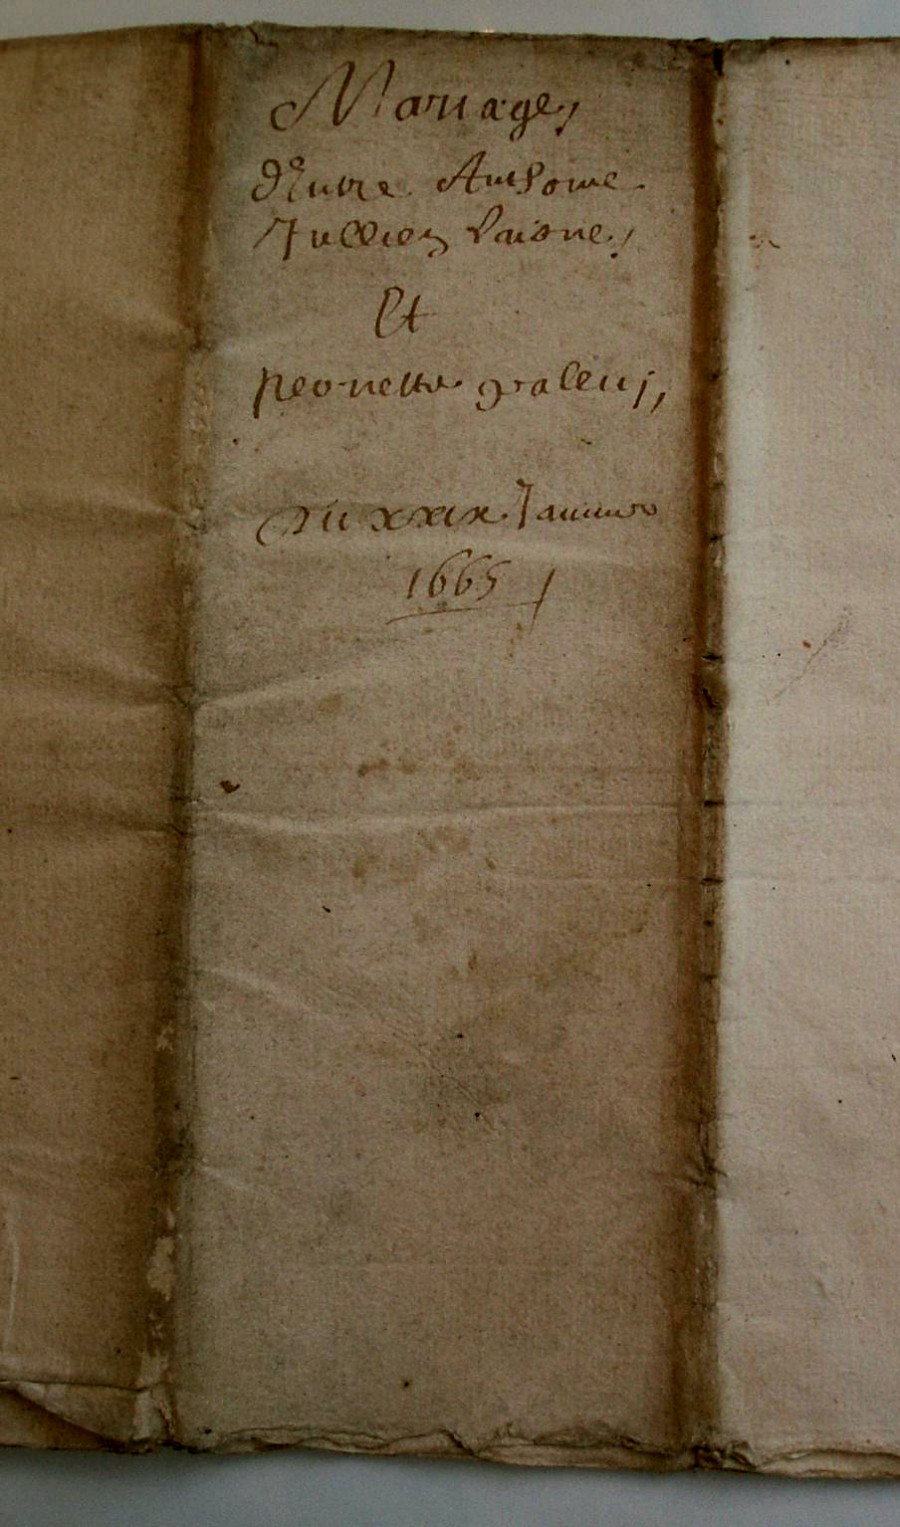 Mariage,
d'Entre Anthoine
Jullien Laisne,
Et
peronette
Du xxix Janvier
1665